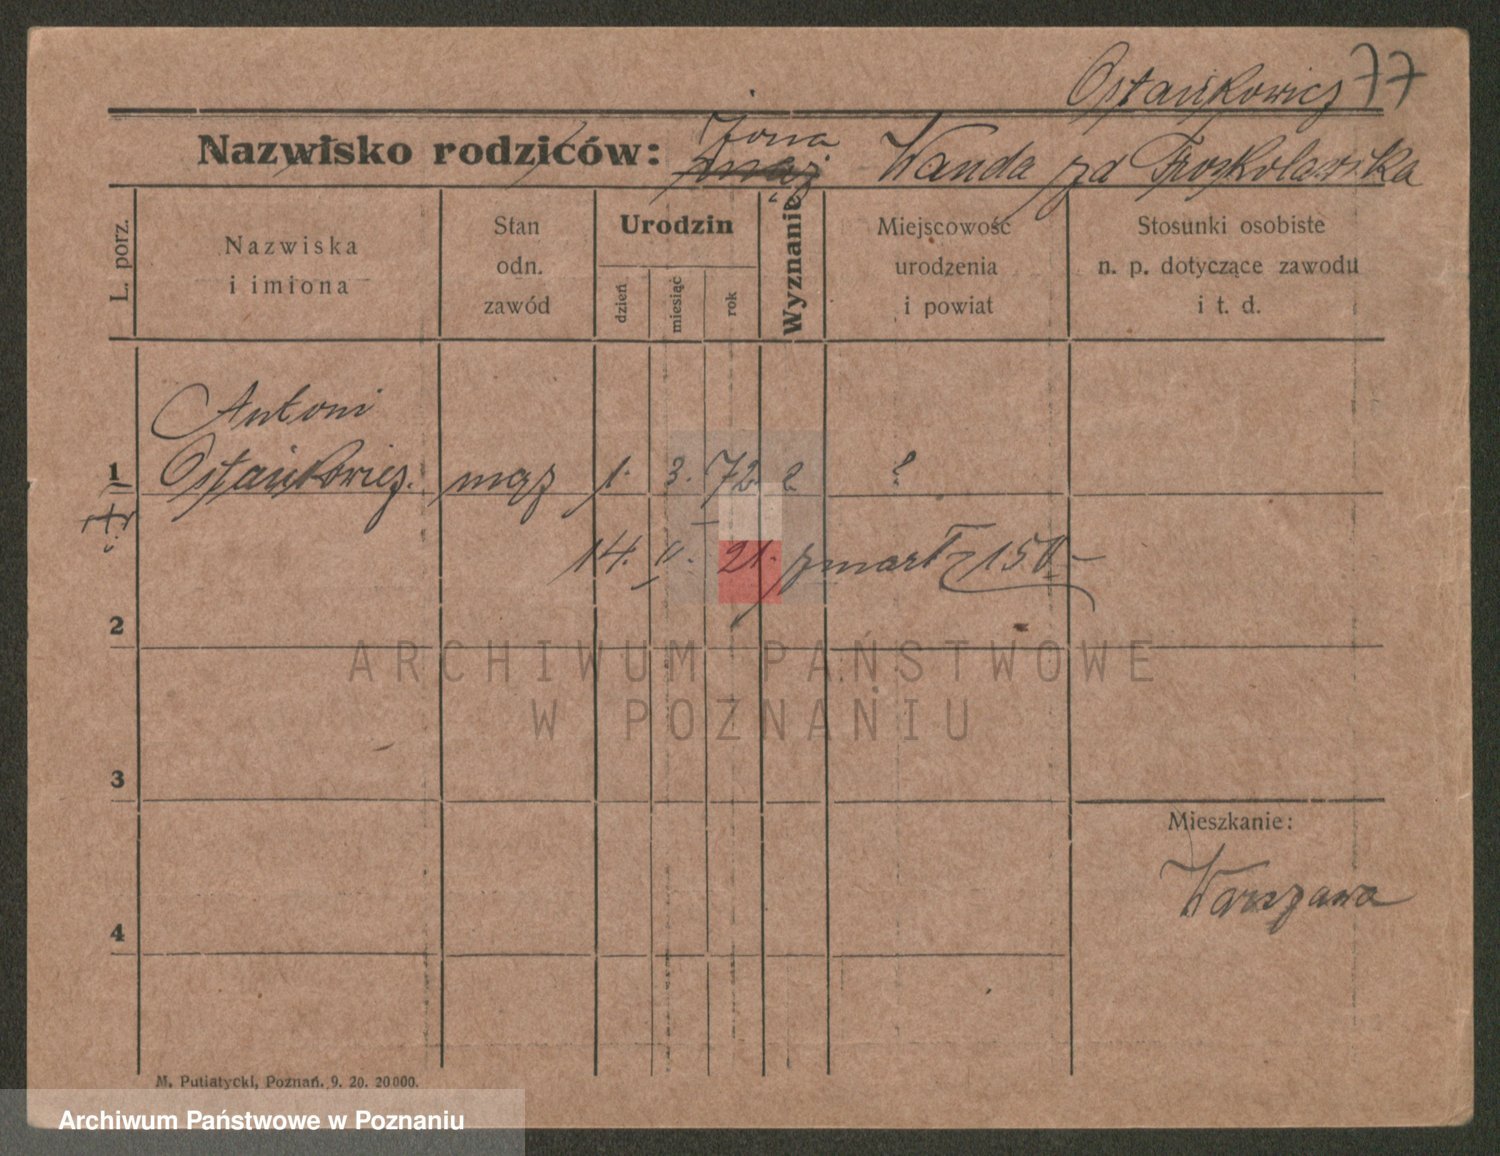 Ostańkowicz 77
Nazwisko rodziców: żona mąż Wanda zd Troskolawska
L. porz.
Nazwiska
i imiona
Stan
odn.
zawód
Urodzin
dzień
miesiąc
rok
Wyznanie
Miejscowość
urodzenia
i powiat
Stosunki osobiste
n. p. dotyczące zawodu
i t. d.
Antoni
1 Ostańkowicz. mąż 1. 3. 72 ? ?
14. II. 21. zmarł 150
2
ARCHIWUM PAŃSTWOWE
W POZNANIU
3
Mieszkanie:
Warszawa
4
M. Putiatycki, Poznań. 9. 20. 20000.
Archiwum Państwowe w Poznaniu